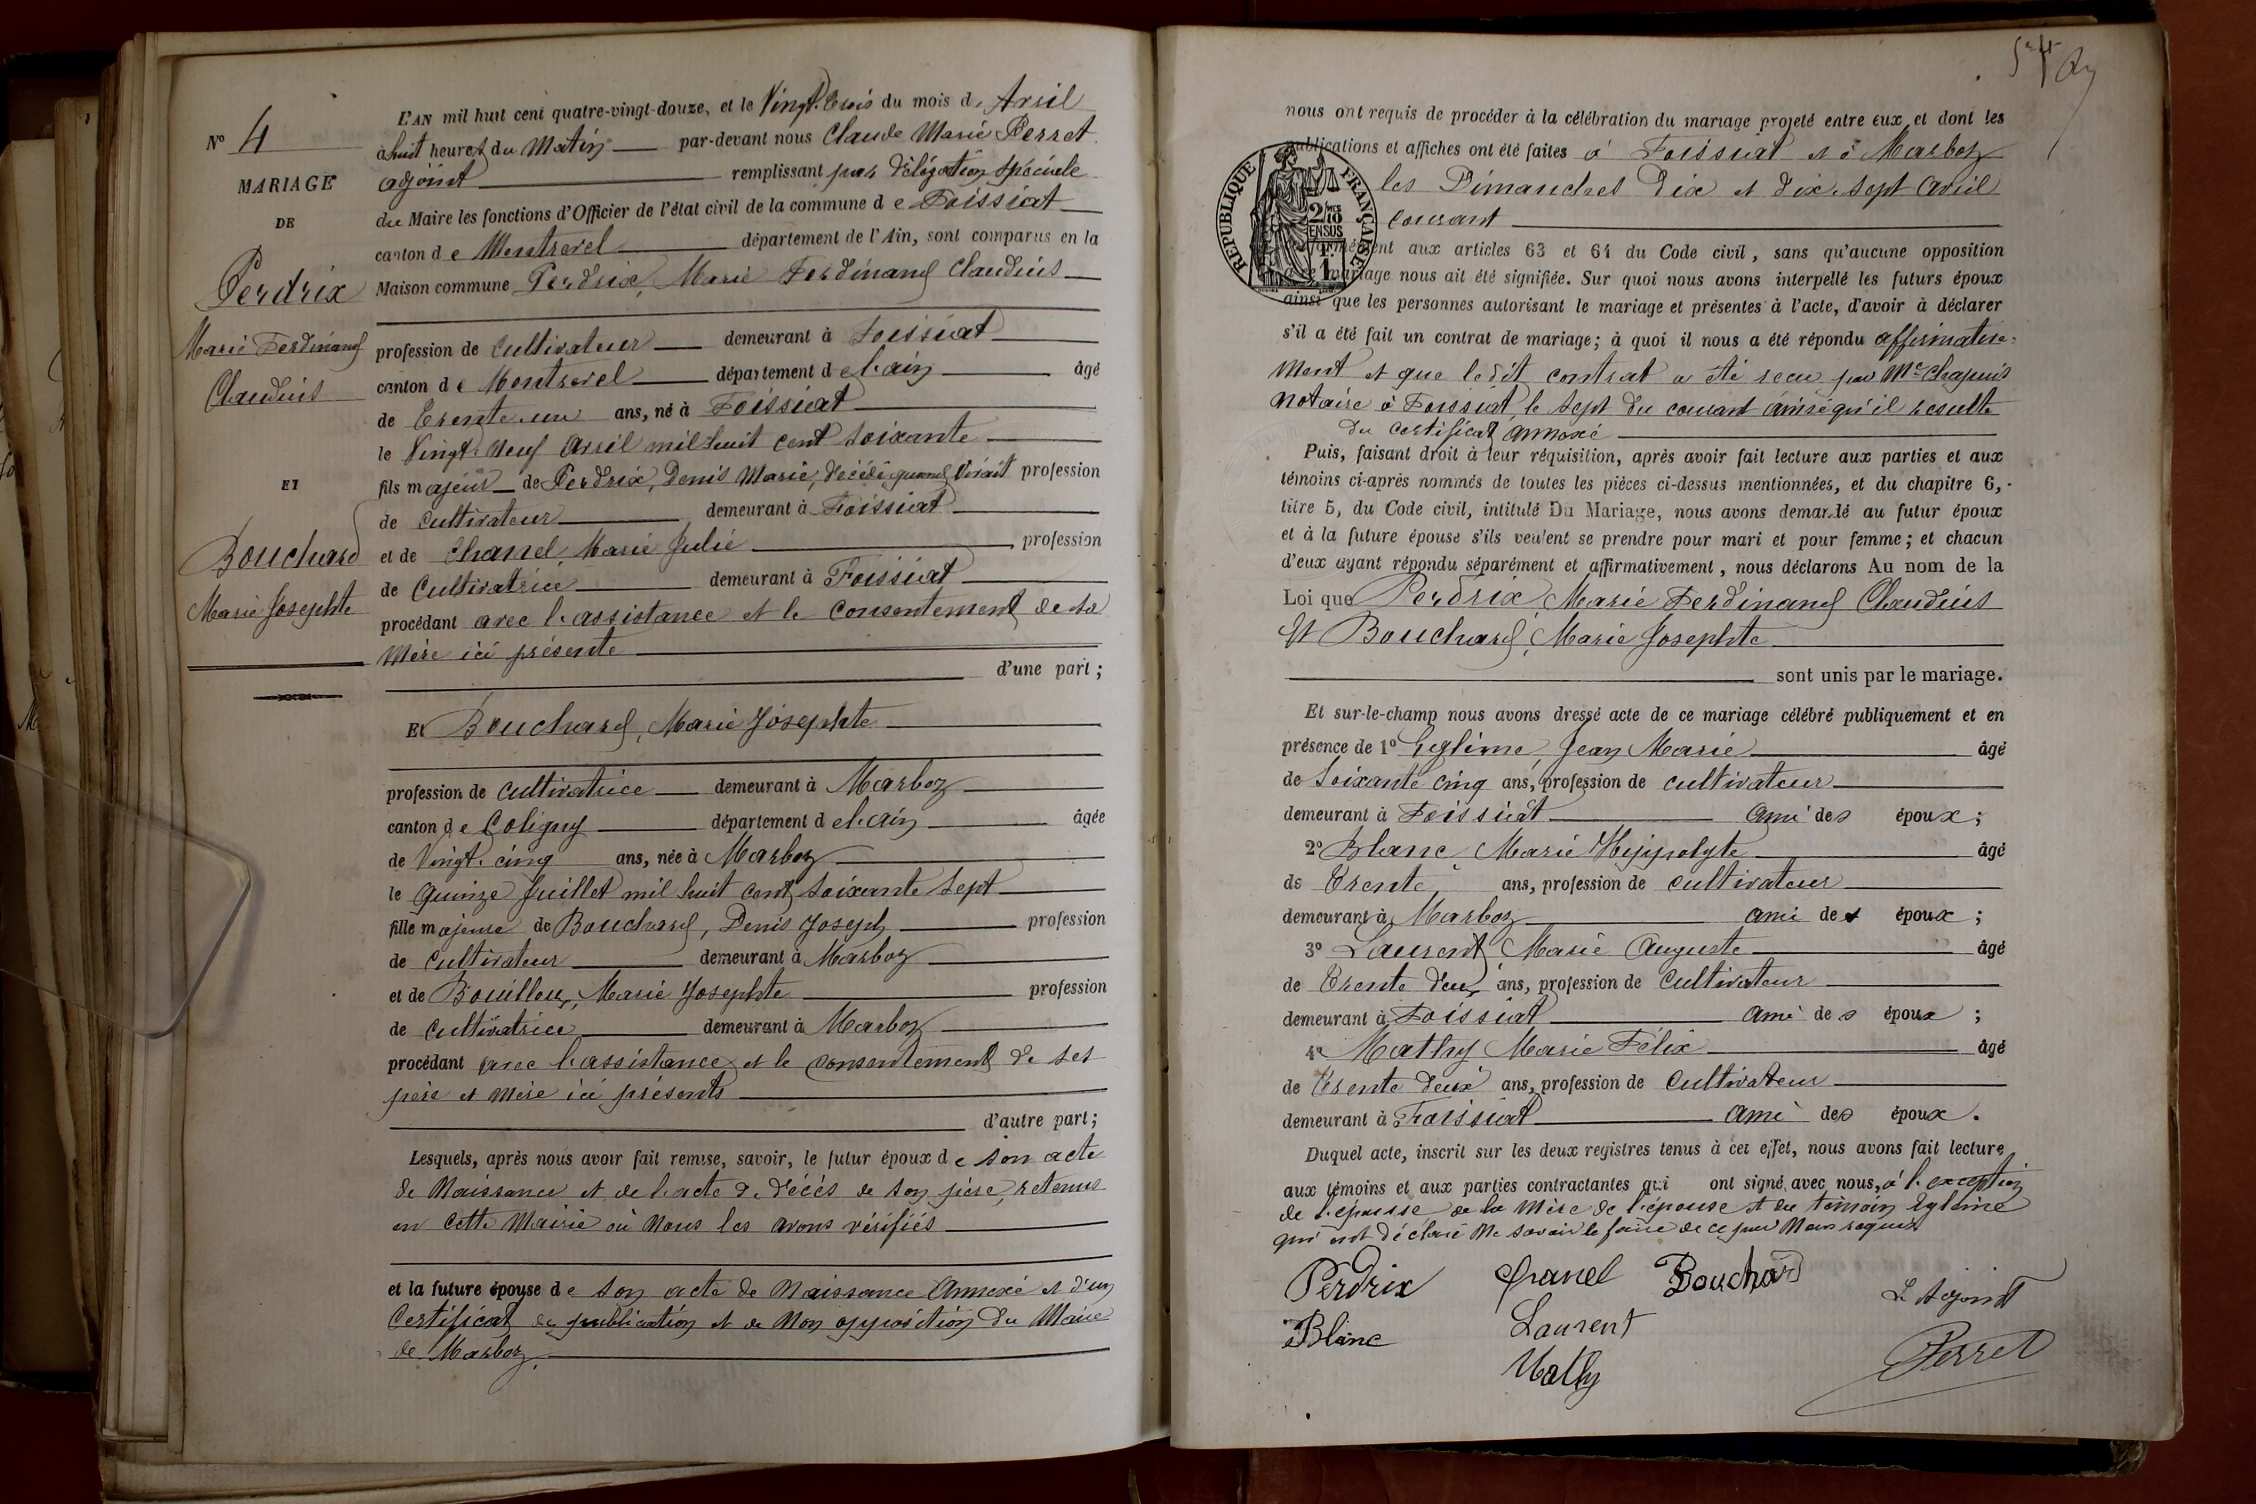 Nº 4
MARIAGE
DE
Perdrix
Marie Ferdinand
Claudius
ET
Bouchard
Marie Josephte
L'AN mil huit cent quatre-vingt-douze, et le Vingt-trois du mois d'Avril
à huit heures du Matin par-devant nous Claude Marie Perret
adjoint remplissant par délégation spéciale
du Maire les fonctions d'Officier de l'état civil de la commune de Foissiat
canton de Montrevel département de l'Ain, sont comparus en la
Maison commune Perdrix, Marie Ferdinand Claudius
profession de Cultivateur demeurant à Foissiat
canton de Montrevel département de l'ain âgé
de Trente-un ans, né à Foissiat
le Vingt-neuf Avril mil huit cent soixante
fils majeur de Perdrix, Denis Marie, décédé quand vivait profession
de cultivateur demeurant à Foissiat
et de Chanel, Marie Julie profession
de Cultivatrice demeurant à Foissiat
procédant avec l'assistance et le consentement de sa
Mère ici présente
d'une part;
Et Bouchard, Marie Josephte
profession de cultivatrice demeurant à Marboz
canton de Coligny département de l'ain âgée
de Vingt-cinq ans, née à Marboz
le quinze Juillet mil huit cent soixante sept
fille majeure de Bouchard, Denis Joseph profession
de cultivateur demeurant à Marboz
et de Bouilloux, Marie Josephte profession
de cultivatrice demeurant à Marboz
procédant avec l'assistance et le consentement de ses
père et mère ici présents
d'autre part;
Lesquels, après nous avoir fait remise, savoir, le futur époux de son acte
de Naissance et de l'acte de décès de son père, retenus
en cette Mairie où Nous les avons vérifiés
et la future épouse de son acte de Naissance Annexé et d'un
Certificat de publication et de Non opposition du Maire
de Marboz.
nous ont requis de procéder à la célébration du mariage projeté entre eux et dont les
publications et affiches ont été faites à Foissiat et à Marboz
les Dimanches Dix et dix-sept avril
courant
RÉPUBLIQUE FRANÇAISE
2/10 EN SUS
1 F.
conformément aux articles 63 et 64 du Code civil, sans qu'aucune opposition
à ce mariage nous ait été signifiée. Sur quoi nous avons interpellé les futurs époux
ainsi que les personnes autorisant le mariage et présentes à l'acte, d'avoir à déclarer
s'il a été fait un contrat de mariage; à quoi il nous a été répondu affirmative-
ment et que le dit contrat a été reçu par Me Chapuis
notaire à Foissiat, le sept du courant ainsi qu'il résulte
du certificat annexé
Puis, faisant droit à leur réquisition, après avoir fait lecture aux parties et aux
témoins ci-après nommés de toutes les pièces ci-dessus mentionnées, et du chapitre 6,
titre 5, du Code civil, intitulé Du Mariage, nous avons demandé au futur époux
et à la future épouse s'ils veulent se prendre pour mari et pour femme; et chacun
d'eux ayant répondu séparément et affirmativement, nous déclarons Au nom de la
Loi que Perdrix, Marie Ferdinand Claudius
Et Bouchard, Marie Josephte
sont unis par le mariage.
Et sur-le-champ nous avons dressé acte de ce mariage célébré publiquement et en
présence de 1º Egléme Jean Marie âgé
de Soixante cinq ans, profession de cultivateur
demeurant à Foissiat ami des époux;
2º Blanc Marie Hippolyte âgé
de Trente ans, profession de cultivateur
demeurant à Marboz ami des époux;
3º Laurent Marie Auguste âgé
de Trente deux ans, profession de cultivateur
demeurant à Foissiat ami des époux;
4º Mathy Marie Félix âgé
de trente deux ans, profession de cultivateur
demeurant à Foissiat ami des époux.
Duquel acte, inscrit sur les deux registres tenus à cet effet, nous avons fait lecture
aux témoins et aux parties contractantes qui ont signé avec nous, à l'exception
de l'épouse de la Mère de l'épouse et du témoin Egléme
qui ont déclaré Ne savoir le faire de ce par Nous requis
Perdrix Chanel Bouchard L'Adjoint
Blanc Laurent Perret
Mathy